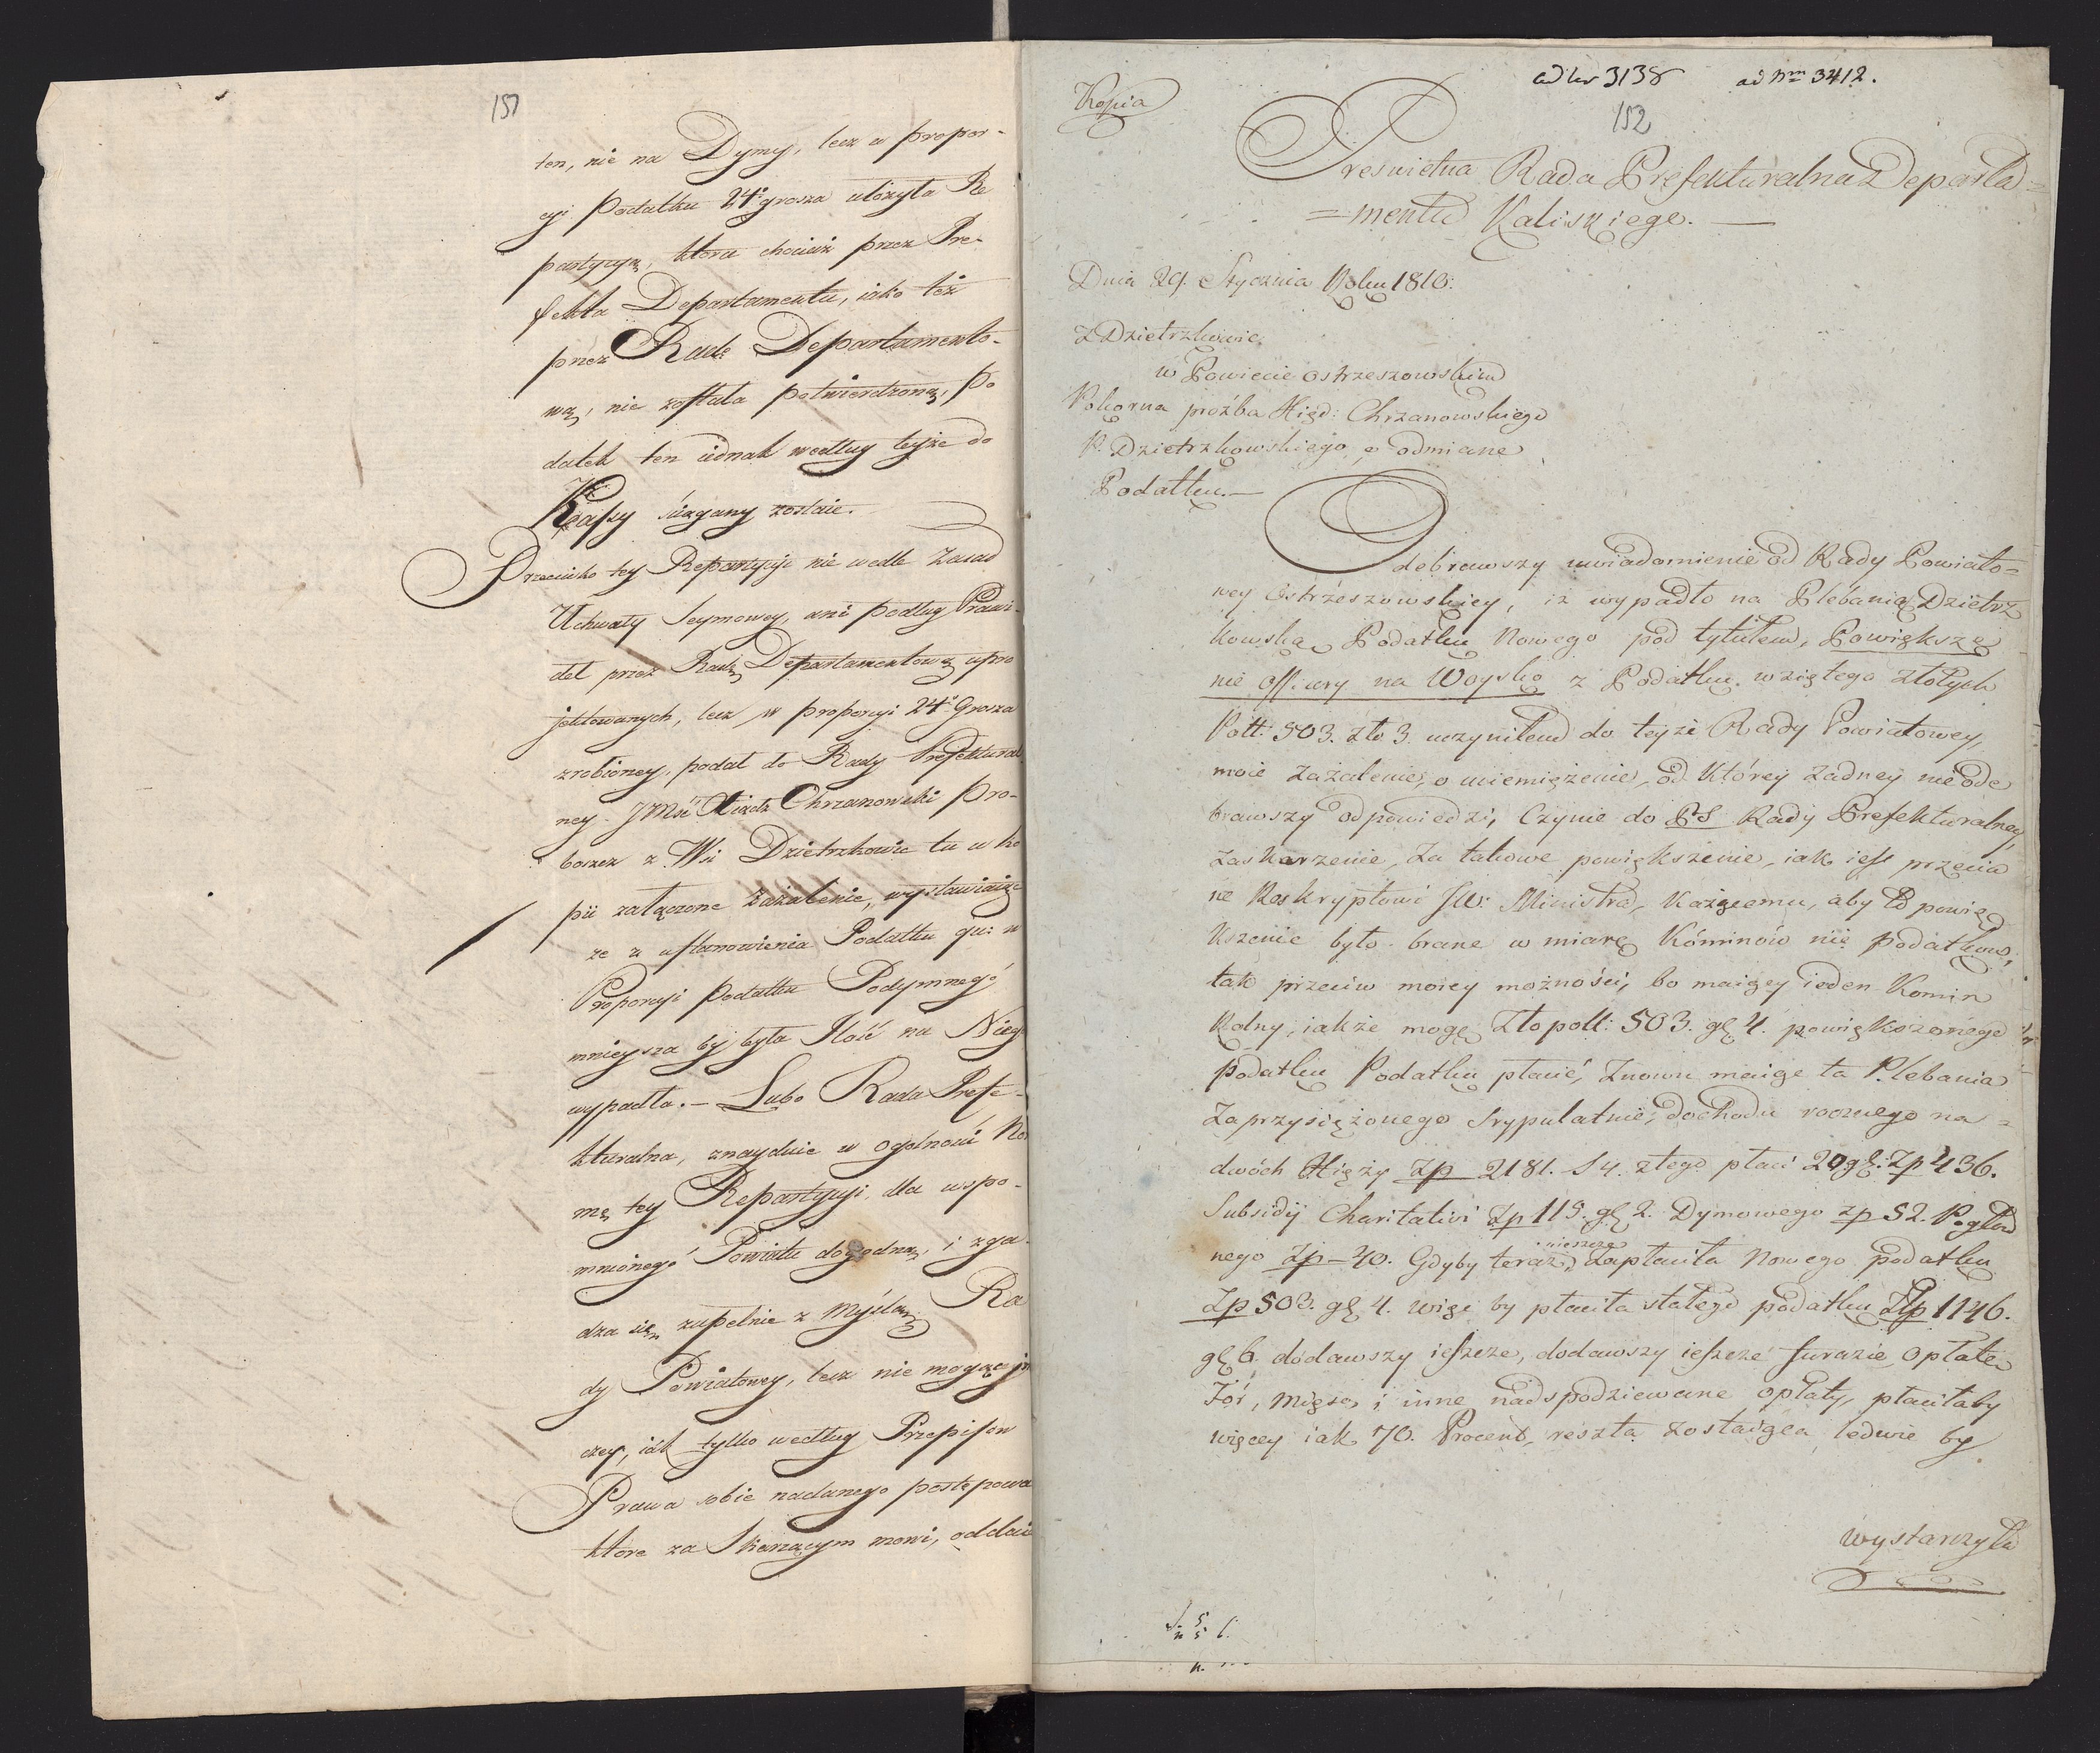 151
ten, nie na Dymy, lecz w propor-
cyi Podatku 24º grosza ułożyła Re
partycyą, która chociaż przez Pre-
fekta Departamentu, iako też
przez Radę Departamento-
wą, nie została potwierdzoną, Po
datek ten iednak według teyże do
Kassy ściągany zostaie.
Przeciwko tey Repartycyi nie wedle Zasad
Uchwały Seymowey, ani podług Prawi-
deł przez Radę Departamentową upro
jektowanych, lecz w proporcyi 24º Grosza
zrobioney, podał do Rady Prefektural
ney JMść Xiądz Chrzanowski Pro-
boszcz z Wsi Dzietrzkowic tu w ko
pii załączone Zażalenie, wystawiaiąc
że z ustanowienia Podatku qu: w
Proporcyi Podatku Podymnego
mnieysza by była Ilość na Niego
wypadła. — Lubo Rada Prefe-
kturalna, znayduie w ogolności No
mę tey Repartycyi, dla wspo-
mnionego Powiatu dogodną, i zga-
dza się zupełnie z Myślą Ra
dy Powiatowey, lecz nie mogąc in
czey, iak tylko według Przepisow
Prawa sobie nadanego postępowa
które za Skarżącym mowi, oddaie
Kopia
ad Nr 3138 ad Nrm 3412.
152
Prześwietna Rada Prefekturalna Departa=
=mentu Kaliskiego. —
Dnia 29. Stycznia Roku 1810.
Z Dzietrzkowic
w Powiecie Ostrzeszowskim
Pokorna proźba Xięd: Chrzanowskiego
P. Dzietrzkowskiego, o odmianę
Podatku. —
Odebrawszy uwiadomienie od Rady Powiato=
wey Ostrzeszowskiey, iż wypadło na Plebanią Dzietrz
kowską Podatku Nowego pod tytułem, Powiększe
nie Offiary na Woysko z Podatku wziętego złotych
Poll: 503. zło 3. uczyniłem do teyże Rady Powiatowey,
moie Zażalenie, o uciemiężenie, od którey żadney nie ode
brawszy odpowiedzi, Czynię do PS Rady Prefekturalney,
zaskarżenie, za takowe powiększenie, iak iest przeciw
ne Reskryptowi JW: Ministra, Każącemu, aby to powię
kszenie było brane w miarę Kóminów nie podatków,
tak przeciw moiey możności, bo maiący ieden Komin
Rolny, iakże mogę Złopoll: 503. gł 4. powiększonego
podatku Podatku płacić, Znowu maiąc ta Plebania
Zaprzysiężonego Stypulatnie, dochodu rocznego na=
dwóch Xięży Zp 2181. 14. z tego płaci 20gł: Zp 436.
Subsidij Charitativi Zp 115. gł 2. Dymowego zp 52. Pogłow
nego Zp — 40. Gdyby teraz ieszcze Zapłaciła Nowego podatku
Zp 503. gł 4. więc by płaciła stałego podatku Złp 1146.
gł 6. dodawszy ieszcze, dodawszy ieszcze furazie, Opłatę
For, Mięso, i inne nadspodziewane opłaty, płaciłaby
więcey iak 70. Procent, reszta zostaiąca ledwie by
wystarczyła